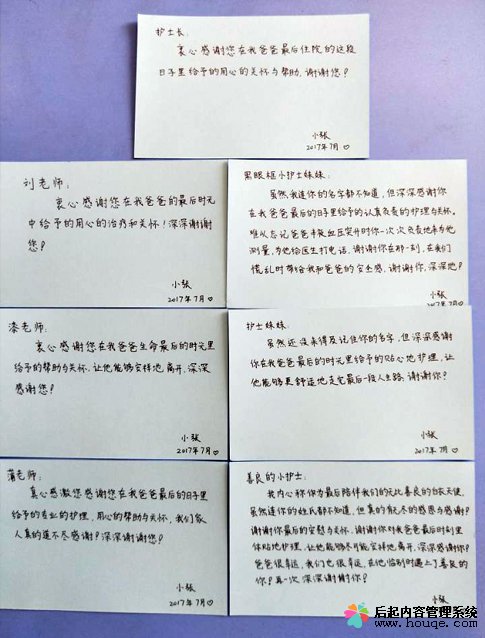 护士长:
衷心感谢您在我爸爸最后住院的这段
日子里给予的用心的关怀与帮助,谢谢您!
小张
2017年7月♡
刘老师:
衷心感谢您在我爸爸的最后时光
中给予的用心的治疗和关怀!深深谢谢
您!
小张
2017年7月♡
黑眼框小护士妹妹:
虽然我连你的名字都不知道,但深深感谢你
在我爸爸最后的日子里给予的认真负责的护理与关怀。
难以忘记爸爸半夜血压突升时你一次次负责地来为他
测量,为他给医生打电话,谢谢你在那一刻,在我们
慌乱时带给我和爸爸的安全感,谢谢你,深深地!
小张
2017年7月♡
漆老师:
衷心感谢您在我爸爸生命最后的时光里
给予的帮助与关怀,让他能够安祥地离开,深深
感谢您!
小张
2017年7月♡
护士妹妹:
虽然还没来得及记住你的名字,但深深感谢
你在我爸爸最后的时光里给予的贴心地护理,让
他能够更舒适地走完最后一段人生路,谢谢你!
小张
2017年7月♡
蒲老师:
真心感激您感谢您在我爸爸最后的日子里
给予的专业的护理,用心的帮助与关怀,我们家
人真的道不尽感谢!深深谢谢您!
小张
2017年7月♡
善良的小护士:
我内心称你为最后陪伴我们的无比善良的白衣天使,
虽然连你的姓氏都不知道,但真的有无尽的感恩与感谢!
谢谢你最后的安慰与关怀,谢谢你对我爸爸最后时刻里
你贴地护理,让他能够尽可能安祥地离开,深深感谢你!
爸爸很幸运,我们也很幸运,在他临别时遇上了善良的
你!再一次深深谢谢你!
小张
后起内容管理系统
www.houqe.com